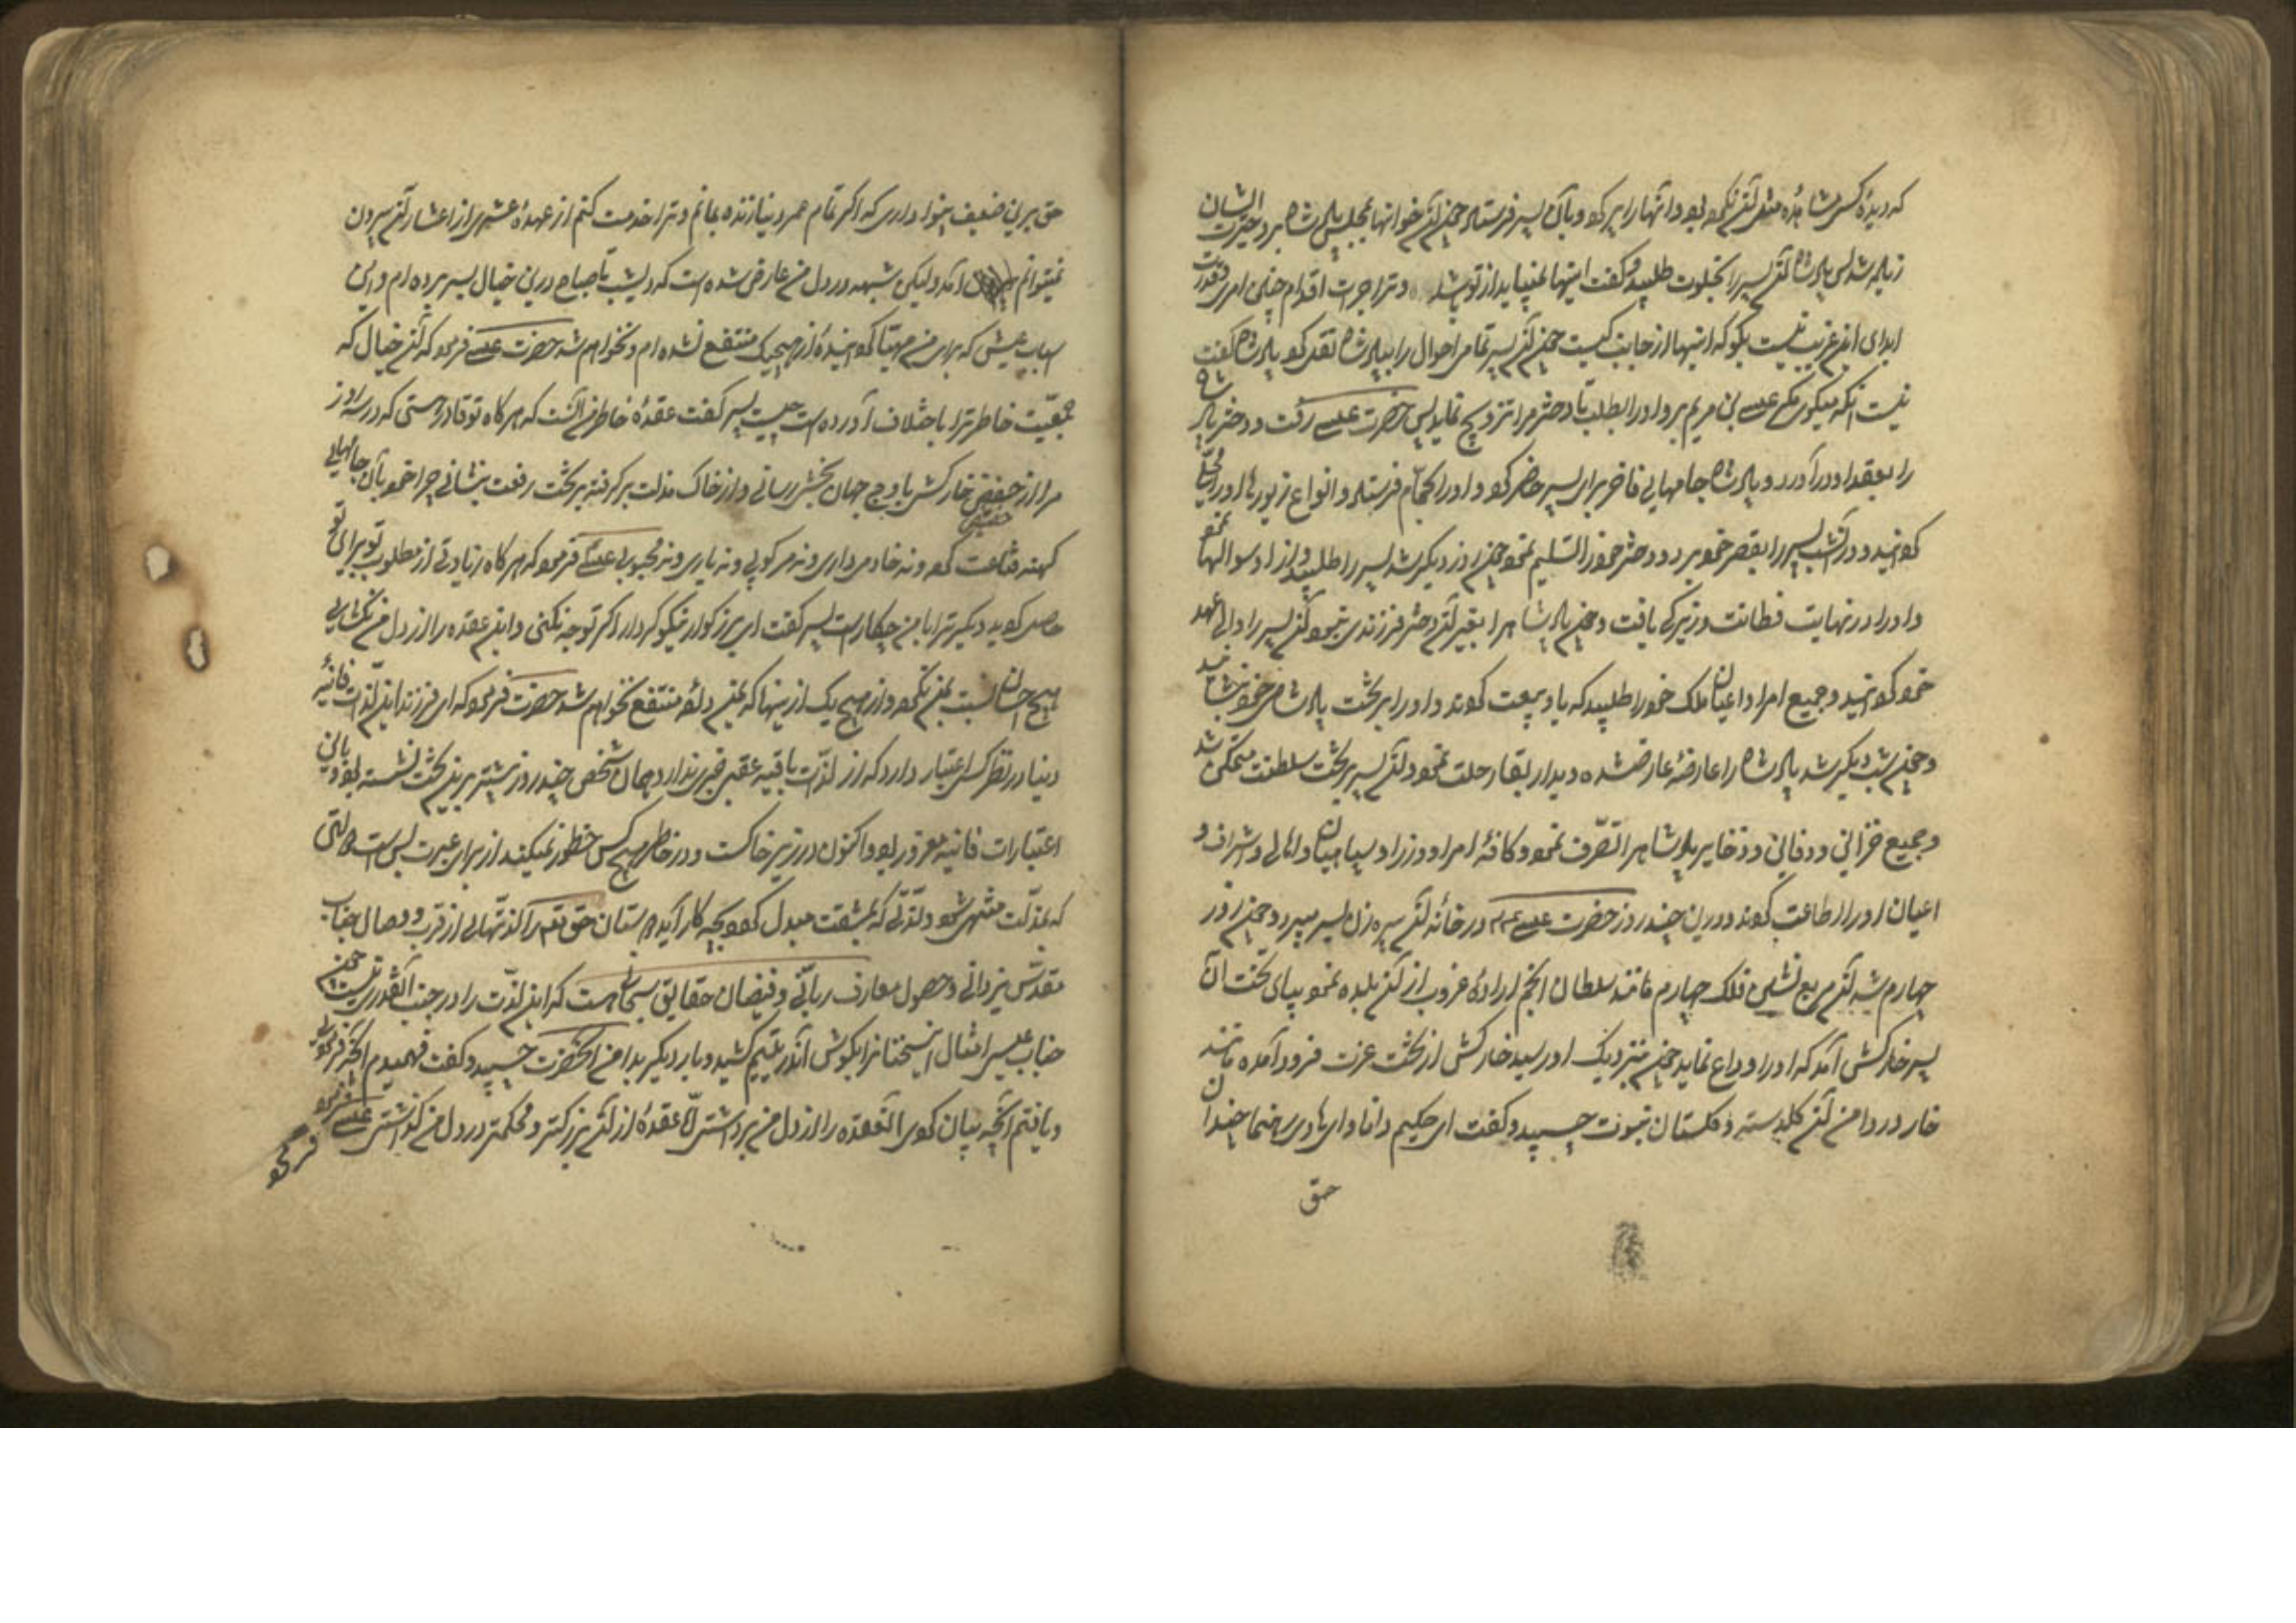 که دیدهٔ کس مشاهده مثل آن نکرده بود و آنها را پر کرد و بآن پسر فرستاد چون آن خوانها بمجلس پادشاه برد حیرت ایشان
زیاده شد پس پادشاه آن پسر را بخلوت طلبید و گفت اینها نمیباید از تو باشد و ترا جرات اقدام چنین امری و قدرت
ابدای این غریب نیست بگو که اینها از جانب کیست چون آن پسر تمامی احوال را بپادشاه نقل کرد پادشاه گفت
نیست آنکه میگوئی مگر عیسی بن مریم برو او را بطلب تا دختر مرا تزویج نماید پس حضرت عیسی رفت و دختر پادشاه
را بعقد او درآورد و پادشاه جامهای فاخر برای پسر حاضر کرد و او را بحمام فرستاد و انواع زیورها او را محلّی
گردانید و در آن شب پسر را بقصر خود برد و دختر خود را تسلیم نمود چون روز دیگر شد پسر را طلبید و از او سوالها نمود
و او را در نهایت فطانت و زیرکی یافت و چون پادشاه را بغیر آن دختر فرزندی نبود آن پسر را ولی عهد
خود گردانید و جمیع امرا و اعیان ملک خود را طلبید که با او بیعت کردند و او را بر تخت پادشاهی خود نشانید
و چون شب دیگر شد پادشاه را عارضهٔ عارض شده و بدار بقا رحلت نمود و آن پسر بر تخت سلطنت متمکن شد
و جمیع خزائن و دفائن و ذخایر پادشاه را تصرّف نمود و کافهٔ امرا و وزرا و سپاهیان و اهالی و اشراف و
اعیان او را اطاعت کردند و درین چند روز حضرت عیسی ع م در خانهٔ آن پیره زن بسر میبرد و چون روز
چهارم شد آن مربع نشین فلک چهارم مانند سلطان انجم ارادهٔ غروب از آن بلده نمود بپای تخت آن
پسر خارکش آمد که او را وداع نماید چون بنزدیک او رسید خارکش از تخت عزت فرود آمده مانند
خار در دامن آن گلدستهٔ گلستان نبوت چسپید و گفت ای حکیم دانا و ای هادی رهنما چندان
حق
حق برین ضعیف بینوا داری که اگر تمام عمر دنیا زنده بمانم و ترا خدمت کنم از عهدهٔ عشری از اعشار آن بیرون
نمیتوانم آمد و لیکن شبهه در دل من عارض شده است که دیشب تا صباح درین خیال بسر برده ام و این
اسباب عیشی که برای من مهیّا گردانیدهٔ از هیچیک منتفع نشده ام و نخواهم شد حضرت عیسی فرمود که آن خیال که
جمعیّت خاطر ترا باختلاف آورده است چیست پسر گفت عقدهٔ خاطر من آنست که هرگاه تو قادر هستی که در سه روز
مرا از حضیض خارکشی باوج جهان بخشی رسانی و از خاک مذلت برگرفته بر تخت رفعت بنشانی چرا خود بآن جامهای
کهنه قناعت کرده و نه خادمی داری و نه مرکوبی و نه یاری و نه محبوبی عیسی فرمود که هرگاه زیادتی از مطلوب تو برای تو
حاصل گردید دیگر ترا با من چکار است پسر گفت ای بزرگوار نیکو کردار اگر توجه نکنی و این عقده را از دل من نگشایی
هیچ احسان نسبت بمن نکرده و از هیچ یک از اینها که بمن دادهٔ منتفع نخواهم شد حضرت فرمود که ای فرزند این لذّات فانیهٔ
دنیا در نظر کسی اعتبار دارد که از لذّات باقیه عقبی خبر ندارد همان شخص چند روز پیشتر برین تخت نشسته بود و باین
اعتبارات فانیه مغرور بود و اکنون در زیر خاکست و در خاطر هیچکس خطور نمیکند از برای عبرت بس است دولتی
که بمذلّت منتهی شود و لذّتی که بمشقت مبدل گردد بچه کار آید دوستان حق تعالی را لذتهاست از قرب و وصال جناب
مقدّس یزدانی و حصول معارف ربّانی و فیضان حقایق سبحانی هست که این لذّت را در جنب آن قدری نیست چون
جناب عیسی امثال این سخنان را بگوش آن در یتیم کشید و بار دیگر بدامن آن حضرت چسپید و گفت فهمیدم آنچه فرمودی
و یافتم آنچه بیان کردی آن عقده را از دل من برداشتی لّا عقدهٔ از آن بزرگتر و محکمتر در دل من گذاشتی عیسی فرمود
فرمود